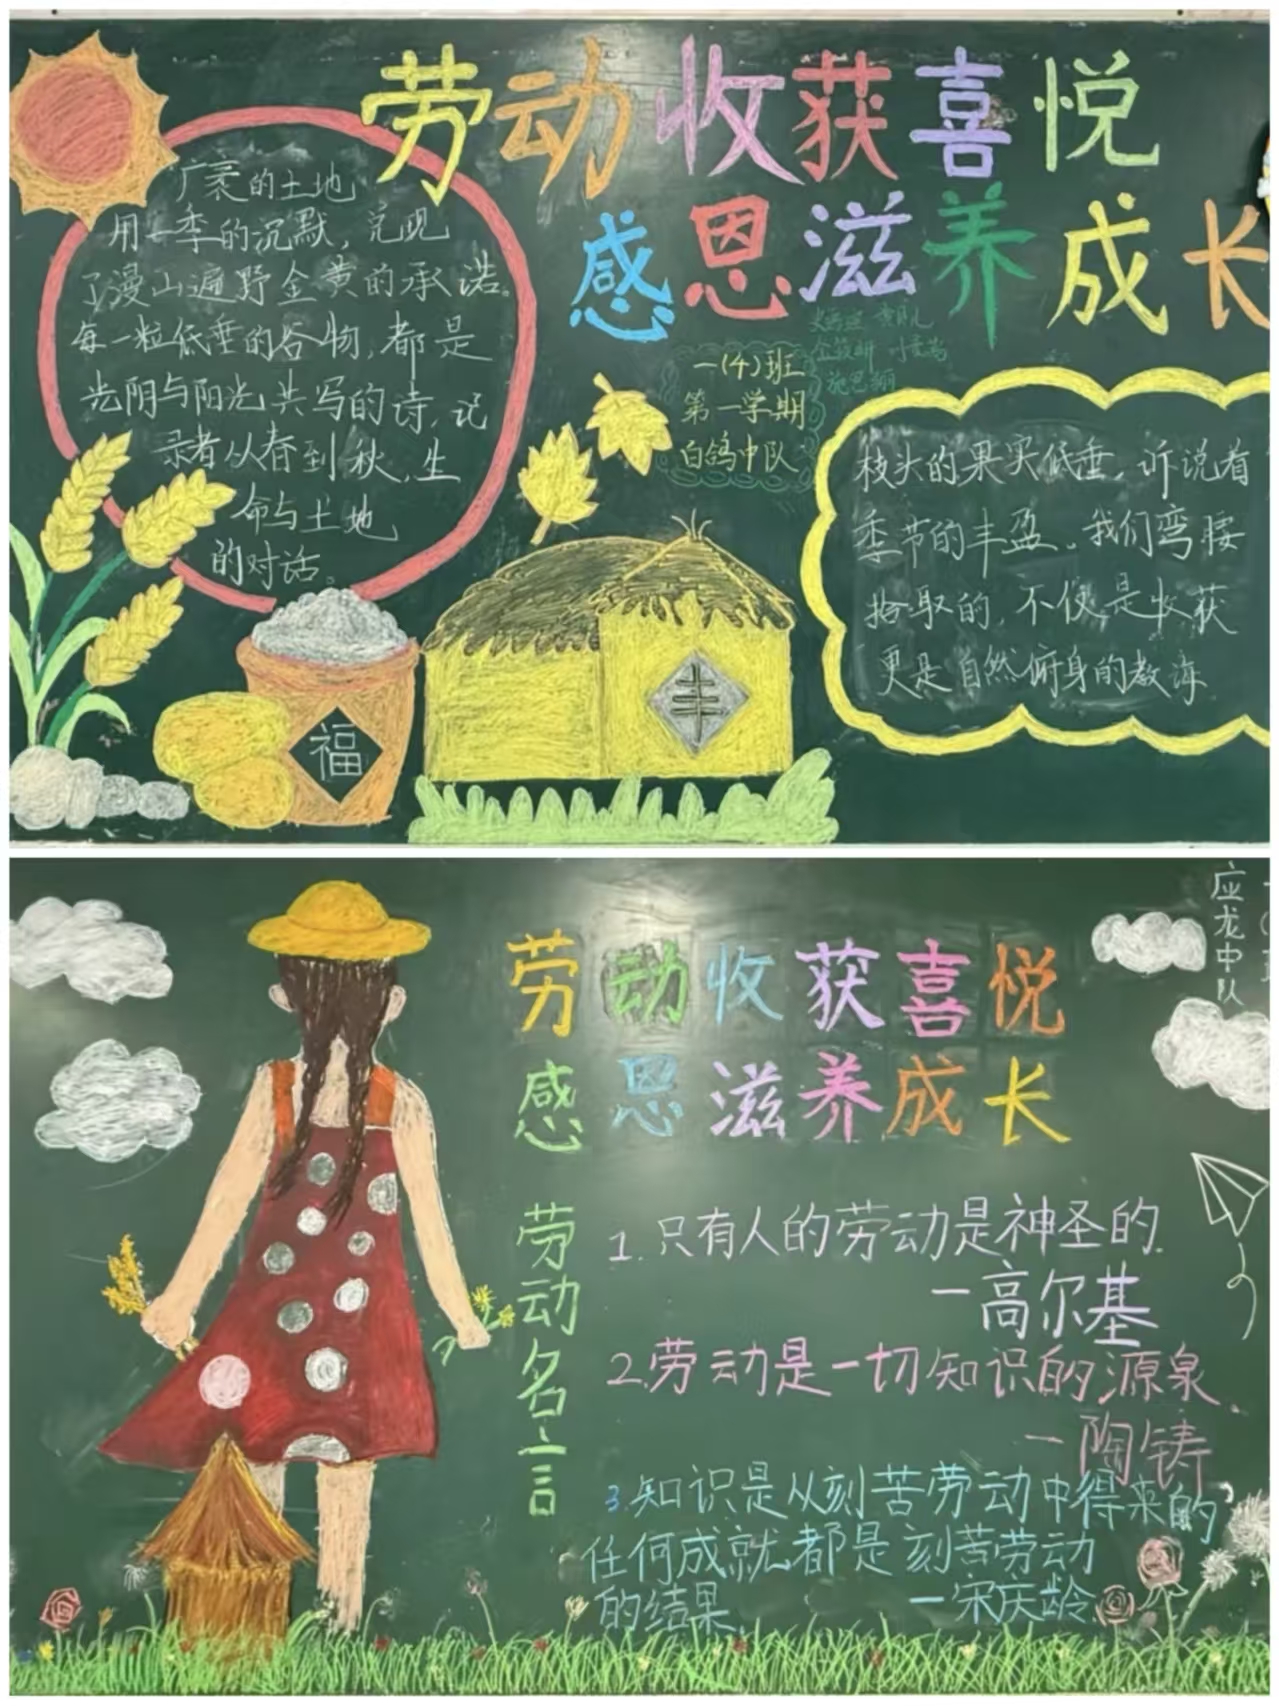 劳动收获喜悦
感恩滋养成长
广袤的土地
用一季的沉默，兑现
了漫山遍野金黄的承诺。
每一粒低垂的谷物，都是
光阴与阳光共写的诗，记
录者从春到秋，生
命与土地
的对话。
一(4)班
第一学期
白鸽中队
枝头的果实低垂，诉说着
季节的丰盈。我们弯腰
拾取的，不仅是收获
更是自然俯身的教诲
福
丰
应龙中队
劳动收获喜悦
感恩滋养成长
劳动名言
1.只有人的劳动是神圣的.
一高尔基
2.劳动是一切知识的源泉.
一陶铸
3.知识是从刻苦劳动中得来的
任何成就都是刻苦劳动
的结果.
一宋庆龄